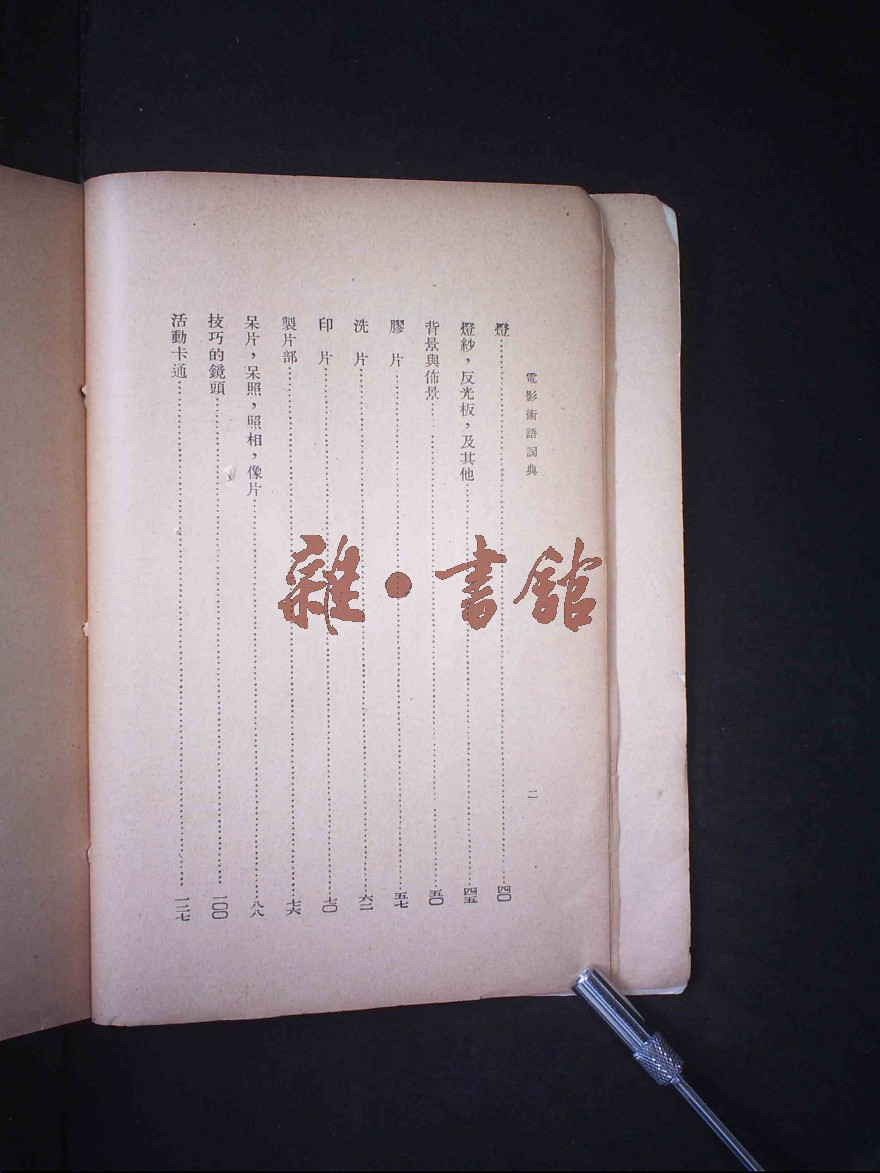 電影術語詞典
二
燈……四〇
燈紗，反光板，及其他……四五
背景與佈景……五〇
膠 片……五七
洗 片……六二
印 片……七〇
製片部……七六
呆片，呆照，照相，像片……八八
技巧的鏡頭……一〇〇
活動卡通……一二七
雜·書館